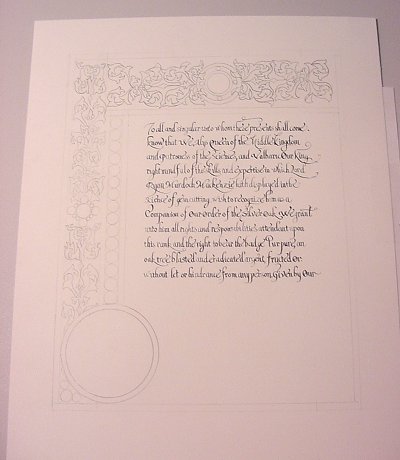 To all and singular unto whom these presents shall come,
know that We, Queen of the Middle Kingdom
and Patroness of the Sciences, and Valharu, Our King,
right mindful of the skills and expertise in which Lord
Ryan Murdoch Mackenzie hath displayed in the
Science of gem cutting, wish to recognize him as a
Companion of Our Order of the Silver Oak. We grant
unto him all rights and responsibilities attendant upon
this rank and the right to bear the badge Purpure, an
oak tree blasted and eradicated argent, fructed Or
without let or hindrance from any person. Given by Our